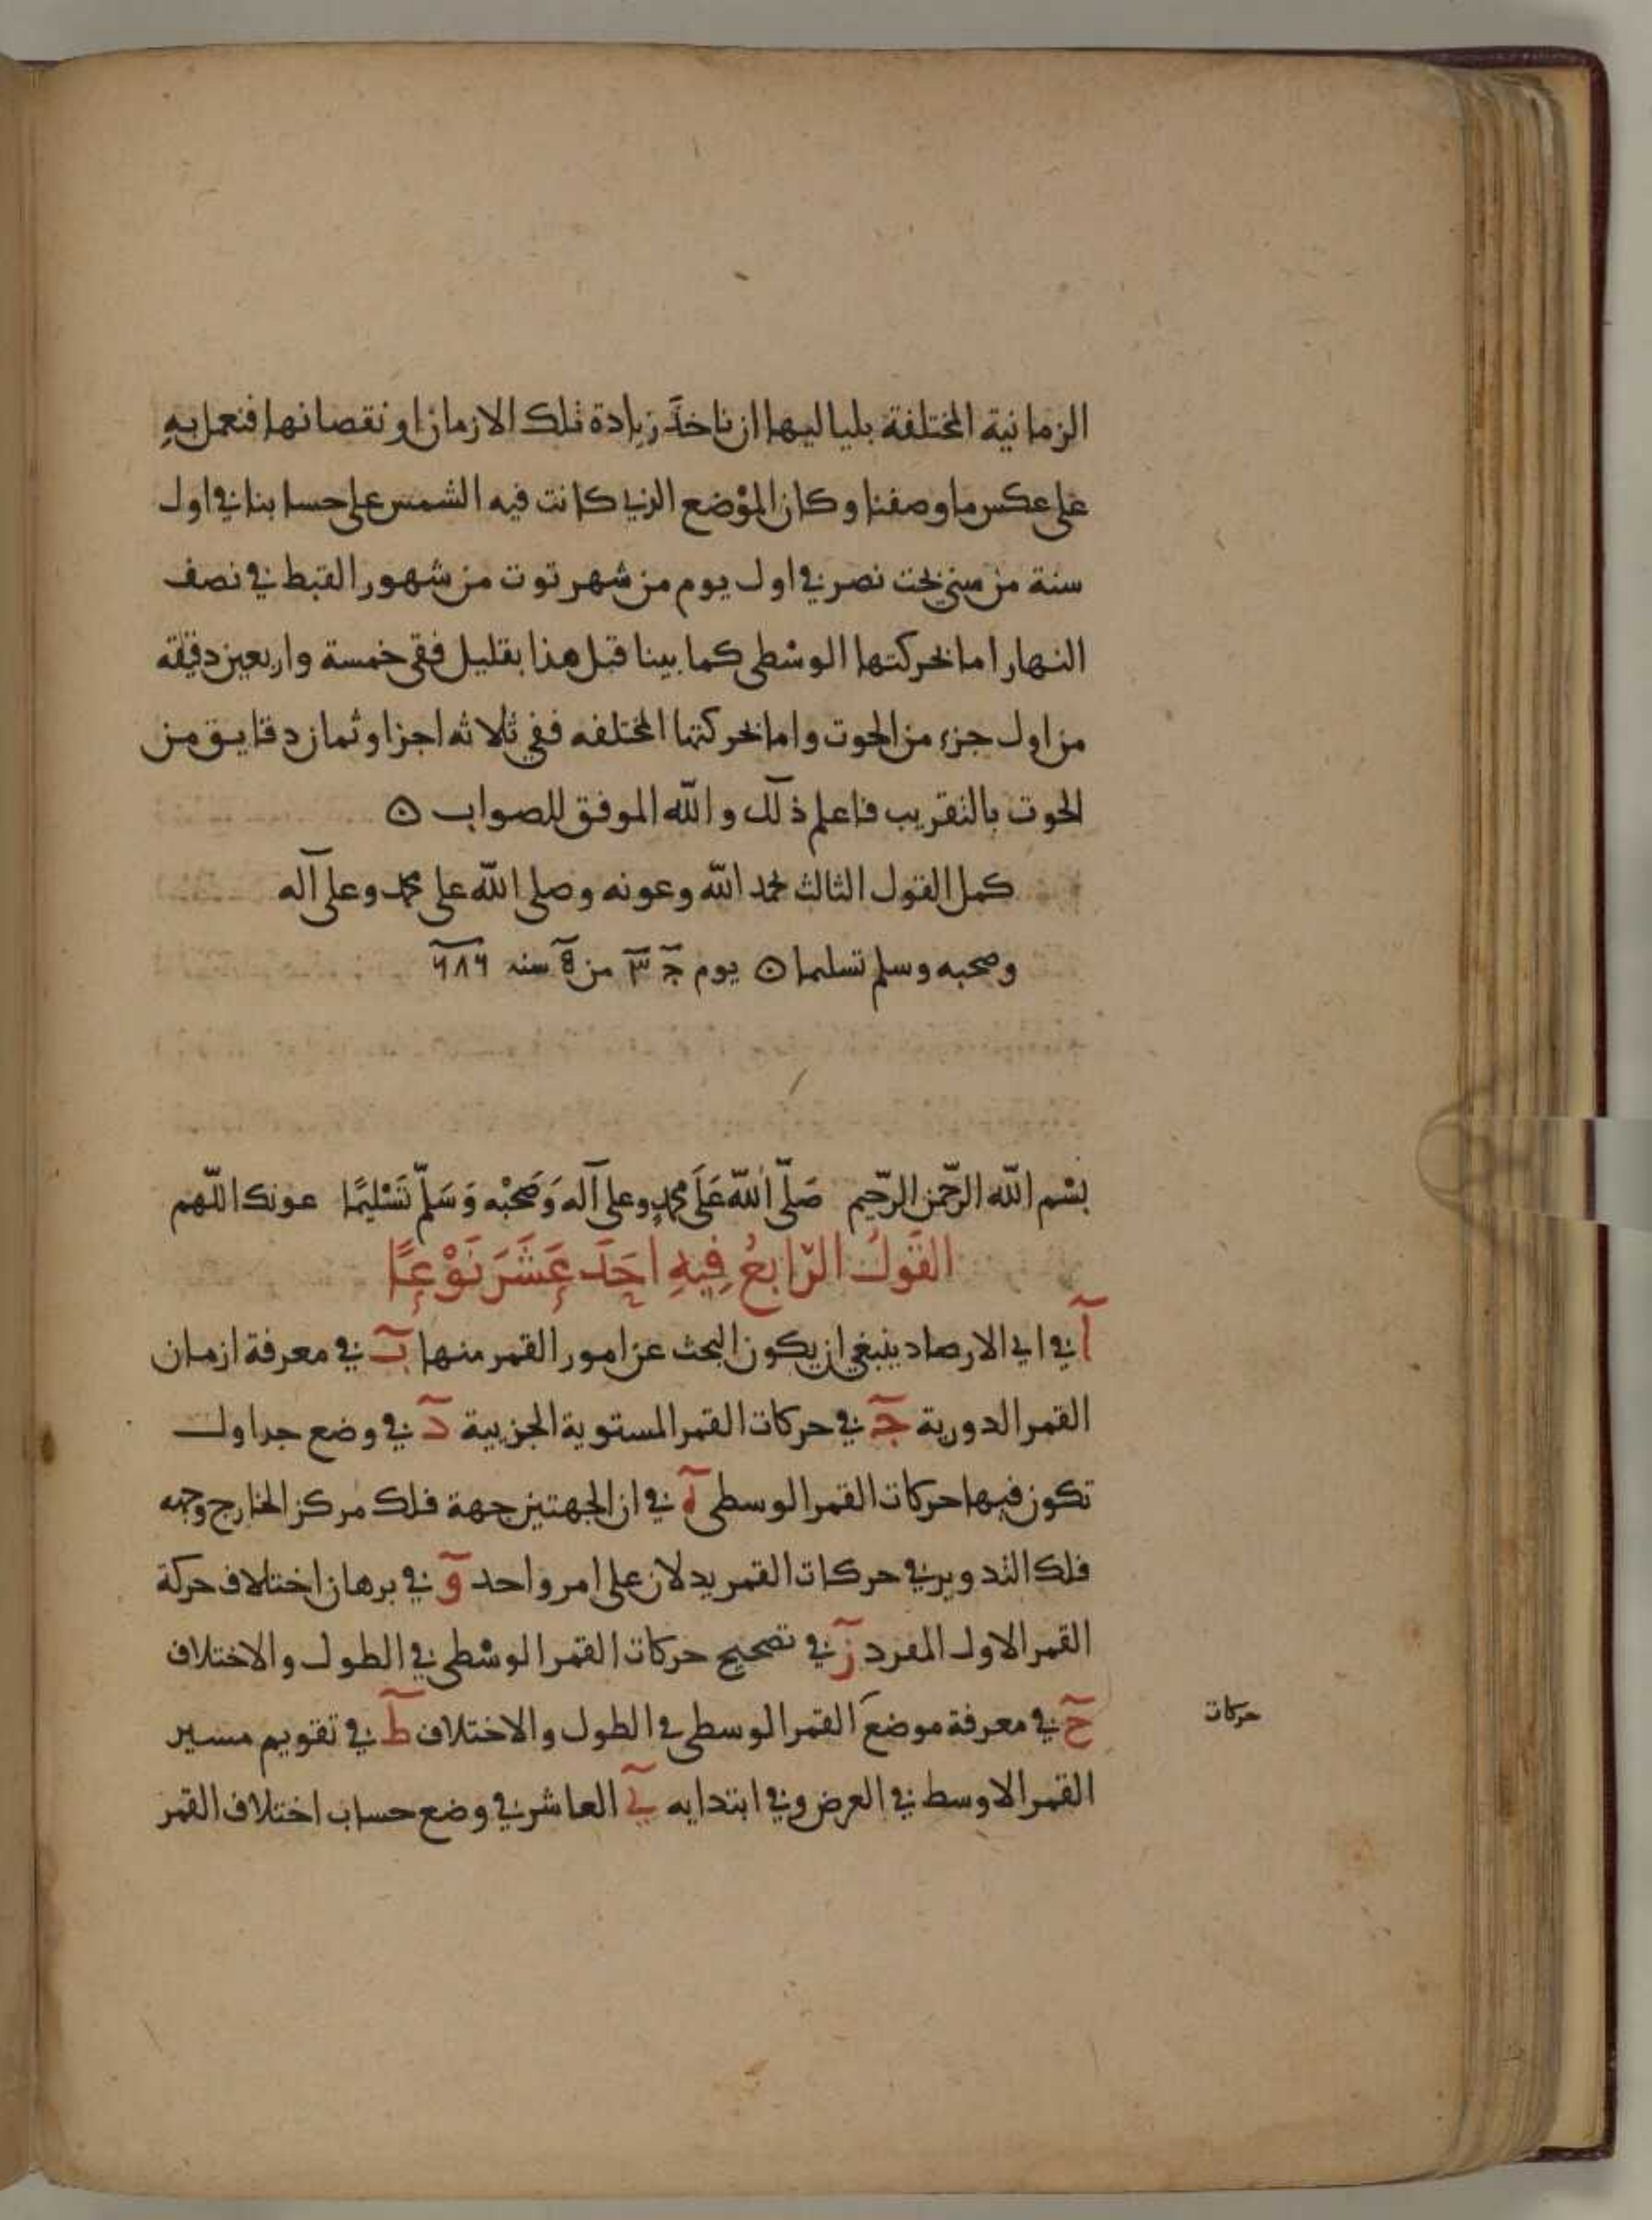 الزمانية المختلفة بلياليها ان ناخذ زيادة تلك الازمان او نقصانها فنعمل به
على عكس ما وصفنا وكان الموضع الذي كانت فيه الشمس على حسابنا في اول
سنة من سني بخت نصر في اول يوم من شهر توت من شهور القبط في نصف
النهار اما بحركتها الوسطى كما بينا قبل هذا بقليل ففي خمسة واربعين دقيقه
من اول جزء من الحوت واما بحركتها المختلفه ففي ثلاثه اجزا وثمان دقايق من
الحوت بالتقريب فاعلم ذلك والله الموفق للصواب
كمل القول الثالث بحمد الله وعونه وصلى الله على محمد وعلى آله
وصحبه وسلم تسليما يوم ج من سنه ٦٨٦
بسم الله الرحمن الرحيم صلى الله على محمد وعلى آله وصحبه وسلم تسليما عونك اللهم
القول الرابع فيه احد عشر نوعا
ا في اي الارصاد ينبغي ان يكون البحث عن امور القمر منها ب في معرفة ازمان
القمر الدورية ج في حركات القمر المستوية الجزيية د في وضع جداول
تكون فيها حركات القمر الوسطى ه في ان الجهتين جهة فلك مركز الخارج وجهه
فلك التدوير في حركات القمر يدلان على امر واحد و في برهان اختلاف حركة
القمر الاول المفرد ز في تصحيح حركات القمر الوسطى في الطول والاختلاف
ح في معرفة موضع القمر الوسطى في الطول والاختلاف ط في تقويم مسير
حركات
القمر الاوسط في العرض وفي ابتدايه ي العاشر في وضع حساب اختلاف القمر